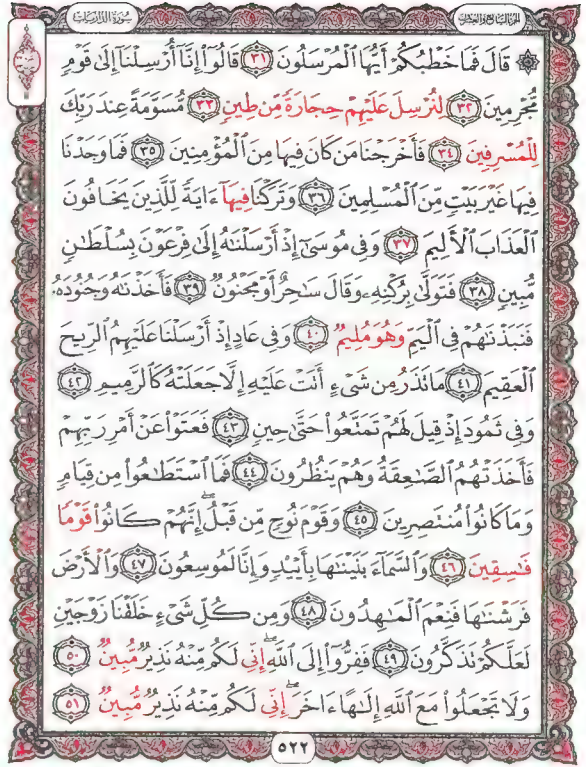 سُورَةُ الذَّارِيَاتِ
الجزء السابع والعشرون
۞ قَالَ فَمَا خَطْبُكُمْ أَيُّهَا ٱلْمُرْسَلُونَ ٣١ قَالُوٓا۟ إِنَّآ أُرْسِلْنَآ إِلَىٰ قَوْمٍ
مُّجْرِمِينَ ٣٢ لِنُرْسِلَ عَلَيْهِمْ حِجَارَةً مِّن طِينٍ ٣٣ مُّسَوَّمَةً عِندَ رَبِّكَ
لِلْمُسْرِفِينَ ٣٤ فَأَخْرَجْنَا مَن كَانَ فِيهَا مِنَ ٱلْمُؤْمِنِينَ ٣٥ فَمَا وَجَدْنَا
فِيهَا غَيْرَ بَيْتٍ مِّنَ ٱلْمُسْلِمِينَ ٣٦ وَتَرَكْنَا فِيهَآ ءَايَةً لِّلَّذِينَ يَخَافُونَ
ٱلْعَذَابَ ٱلْأَلِيمَ ٣٧ وَفِى مُوسَىٰٓ إِذْ أَرْسَلْنَٰهُ إِلَىٰ فِرْعَوْنَ بِسُلْطَٰنٍ
مُّبِينٍ ٣٨ فَتَوَلَّىٰ بِرُكْنِهِۦ وَقَالَ سَٰحِرٌ أَوْ مَجْنُونٌ ٣٩ فَأَخَذْنَٰهُ وَجُنُودَهُۥ
فَنَبَذْنَٰهُمْ فِى ٱلْيَمِّ وَهُوَ مُلِيمٌ ٤٠ وَفِى عَادٍ إِذْ أَرْسَلْنَا عَلَيْهِمُ ٱلرِّيحَ
ٱلْعَقِيمَ ٤١ مَا تَذَرُ مِن شَىْءٍ أَتَتْ عَلَيْهِ إِلَّا جَعَلَتْهُ كَٱلرَّمِيمِ ٤٢
وَفِى ثَمُودَ إِذْ قِيلَ لَهُمْ تَمَتَّعُوا۟ حَتَّىٰ حِينٍ ٤٣ فَعَتَوْا۟ عَنْ أَمْرِ رَبِّهِمْ
فَأَخَذَتْهُمُ ٱلصَّٰعِقَةُ وَهُمْ يَنظُرُونَ ٤٤ فَمَا ٱسْتَطَٰعُوا۟ مِن قِيَامٍ
وَمَا كَانُوا۟ مُنتَصِرِينَ ٤٥ وَقَوْمَ نُوحٍ مِّن قَبْلُ ۖ إِنَّهُمْ كَانُوا۟ قَوْمًا
فَٰسِقِينَ ٤٦ وَٱلسَّمَآءَ بَنَيْنَٰهَا بِأَيْي۟دٍ وَإِنَّا لَمُوسِعُونَ ٤٧ وَٱلْأَرْضَ
فَرَشْنَٰهَا فَنِعْمَ ٱلْمَٰهِدُونَ ٤٨ وَمِن كُلِّ شَىْءٍ خَلَقْنَا زَوْجَيْنِ
لَعَلَّكُمْ تَذَكَّرُونَ ٤٩ فَفِرُّوٓا۟ إِلَى ٱللَّهِ ۖ إِنِّى لَكُم مِّنْهُ نَذِيرٌ مُّبِينٌ ٥٠
وَلَا تَجْعَلُوا۟ مَعَ ٱللَّهِ إِلَٰهًا ءَاخَرَ ۖ إِنِّى لَكُم مِّنْهُ نَذِيرٌ مُّبِينٌ ٥١
٥٢٢